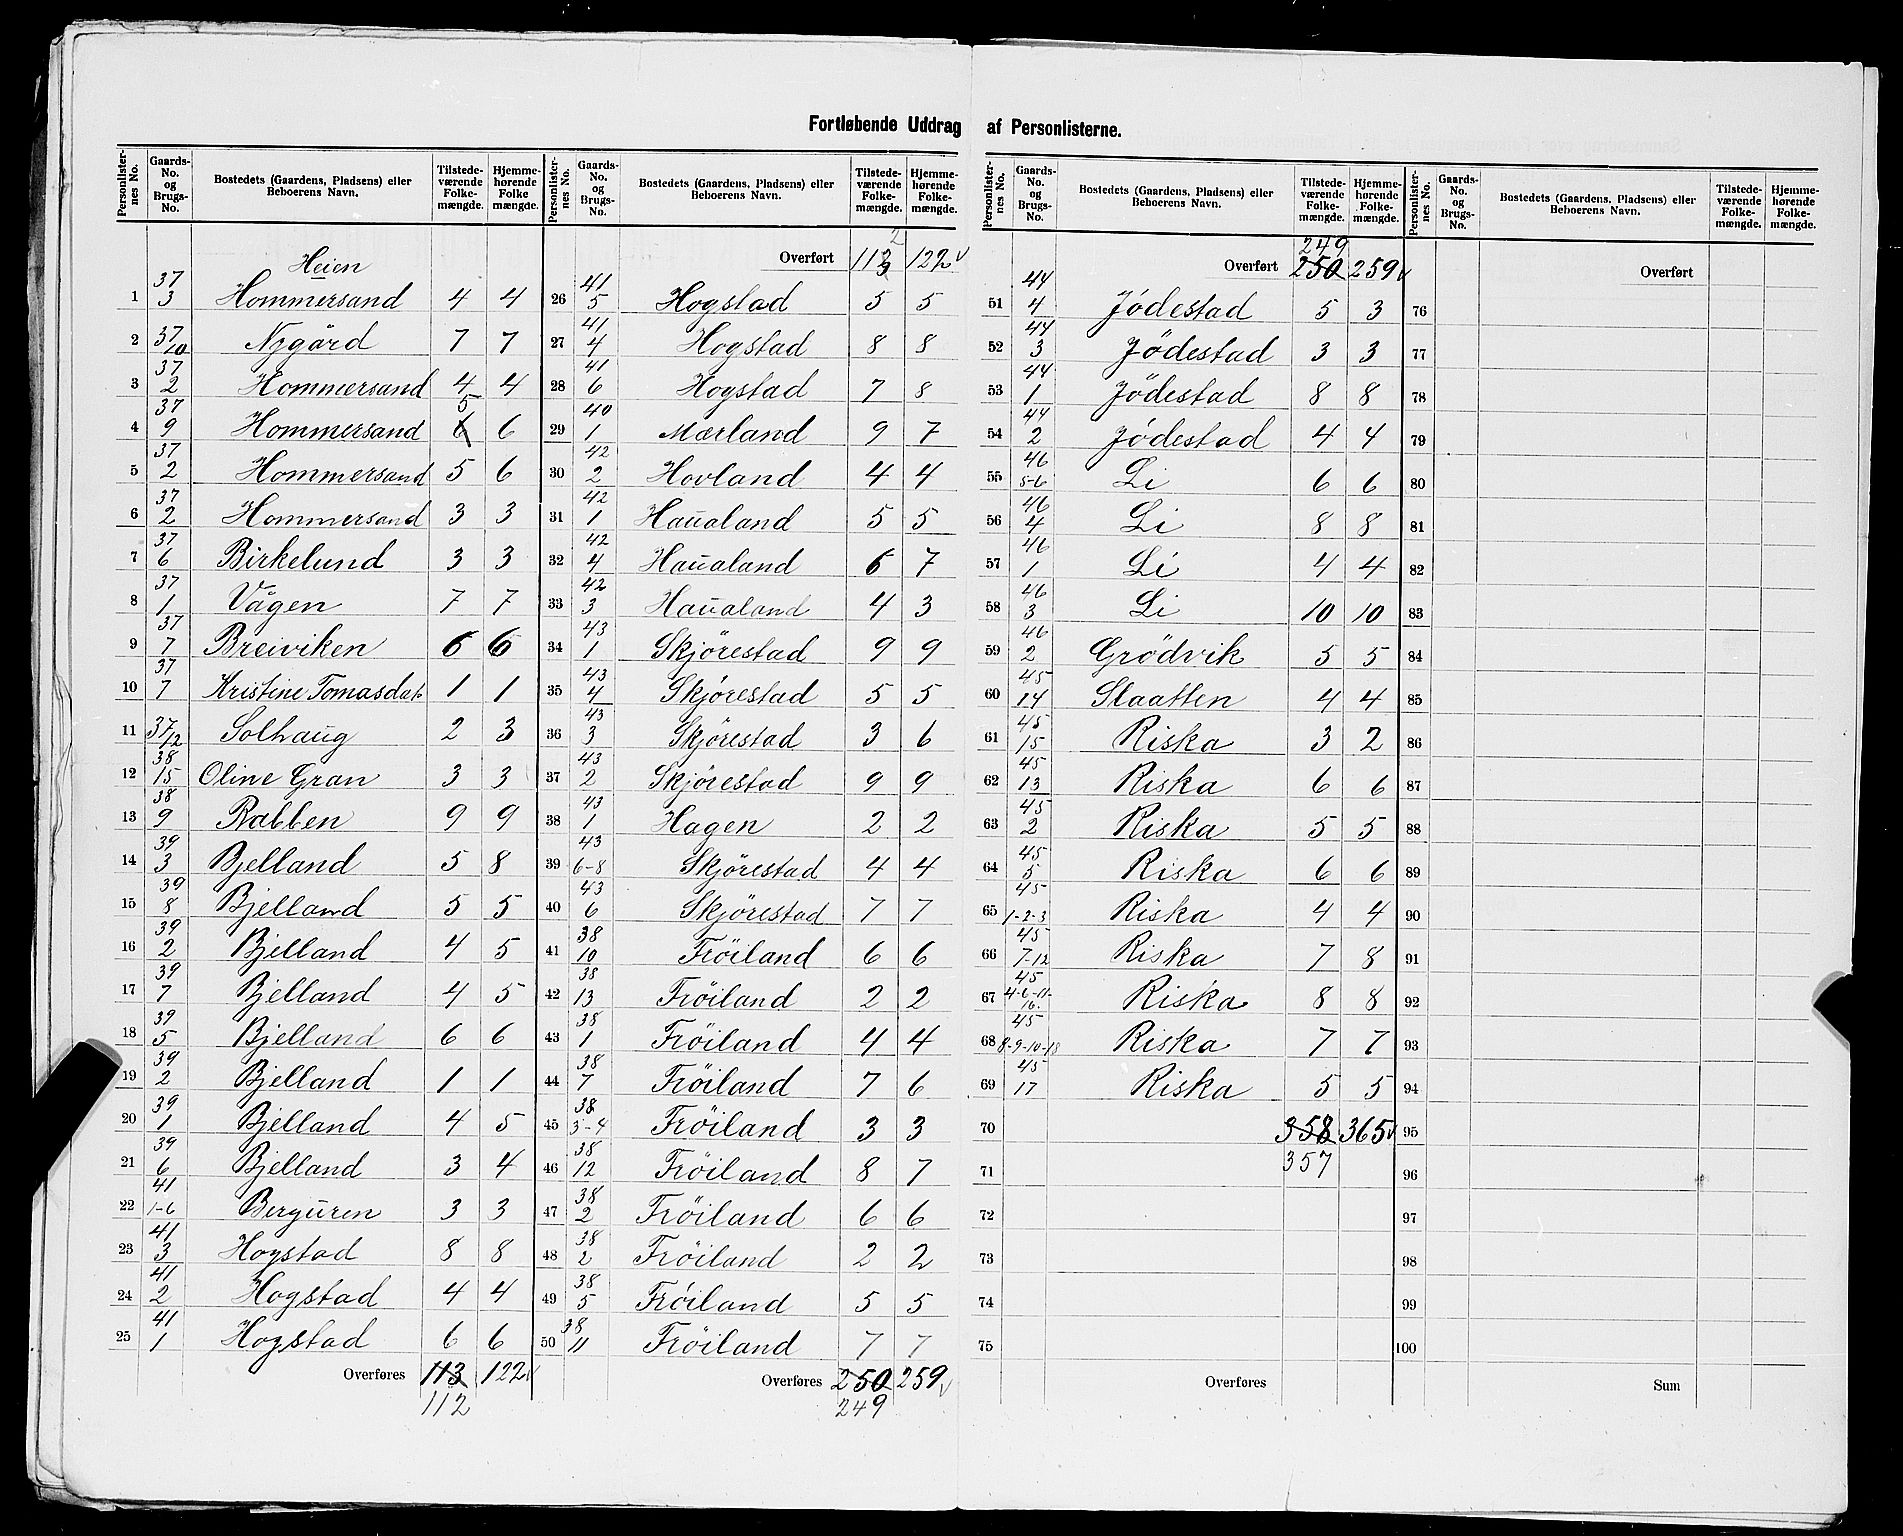 Fortløbende Uddrag af Personlisterne.
Personlister-nes No. | Gaards-No. og Brugs-No. | Bostedets (Gaardens, Pladsens) eller Beboerens Navn. | Tilstede-værende Folke-mængde. | Hjemme-hørende Folke mængde.
Heien
1 | 37 3 | Hommersand | 4 | 4
2 | 37/10 | Nygård | 7 | 7
3 | 37 2 | Hommersand | 4 | 4
4 | 37 9 | Hommersand | 6 5 | 6
5 | 37 2 | Hommersand | 5 | 6
6 | 37 2 | Hommersand | 3 | 3
7 | 37 6 | Birkelund | 3 | 3
8 | 37 1 | Vågen | 7 | 7
9 | 37 7 | Breiviken | 6 | 6
10 | 37 7 | Kristine Tomasdat. | 1 | 1
11 | 37/12 | Solhaug | 2 | 3
12 | 38 15 | Oline Gran | 3 | 3
13 | 38 9 | Rabben | 9 | 9
14 | 39 3 | Bjelland | 5 | 8
15 | 39 8 | Bjelland | 5 | 5
16 | 39 2 | Bjelland | 4 | 5
17 | 39 7 | Bjelland | 4 | 5
18 | 39 5 | Bjelland | 6 | 6
19 | 39 2 | Bjelland | 1 | 1
20 | 39 1 | Bjelland | 4 | 5
21 | 39 6 | Bjelland | 3 | 4
22 | 41 1-6 | Berguren | 3 | 3
23 | 41 3 | Hogstad | 8 | 8
24 | 41 2 | Hogstad | 4 | 4
25 | 41 1 | Hogstad | 6 | 6
Overføres | 113 | 122 v
112
Personlister-nes No. | Gaards-No. og Brugs-No. | Bostedets (Gaardens, Pladsens) eller Beboerens Navn. | Tilstede-værende Folke-mængde. | Hjemme-hørende Folke-mængde.
Overført | 113 2 | 122 v
26 | 41 5 | Hogstad | 5 | 5
27 | 41 4 | Hogstad | 8 | 8
28 | 41 6 | Hogstad | 7 | 8
29 | 40 1 | Mærland | 9 | 7
30 | 42 2 | Hovland | 4 | 4
31 | 42 1 | Haualand | 5 | 5
32 | 42 4 | Haualand | 6 | 7
33 | 42 3 | Haualand | 4 | 3
34 | 43 1 | Skjørestad | 9 | 9
35 | 43 4 | Skjørestad | 5 | 5
36 | 43 3 | Skjørestad | 3 | 6
37 | 43 2 | Skjørestad | 9 | 9
38 | 43 1 | Hagen | 2 | 2
39 | 43 6-8 | Skjørestad | 4 | 4
40 | 43 6 | Skjørestad | 7 | 7
41 | 38 10 | Frøiland | 6 | 6
42 | 38 13 | Frøiland | 2 | 2
43 | 38 1 | Frøiland | 4 | 4
44 | 38 7 | Frøiland | 7 | 6
45 | 38 3-4 | Frøiland | 3 | 3
46 | 38 12 | Frøiland | 8 | 7
47 | 38 2 | Frøiland | 6 | 6
48 | 38 2 | Frøiland | 2 | 2
49 | 38 5 | Frøiland | 5 | 5
50 | 38 11 | Frøiland | 7 | 7
Overføres | 250 | 259 v
249
Personlister-nes No. | Gaards-No. og Brugs-No. | Bostedets (Gaardens, Pladsens) eller Beboerens Navn. | Tilstede-værende Folke-mængde. | Hjemme-hørende Folke-mængde.
249
Overført | 250 | 259 v
51 | 44 4 | Jødestad | 5 | 3
52 | 44 3 | Jødestad | 3 | 3
53 | 44 1 | Jødestad | 8 | 8
54 | 44 2 | Jødestad | 4 | 4
55 | 46 5-6 | Li | 6 | 6
56 | 46 4 | Li | 8 | 8
57 | 46 1 | Li | 4 | 4
58 | 46 3 | Li | 10 | 10
59 | 46 2 | Grødvik | 5 | 5
60 | 45 14 | Slaatten | 4 | 4
61 | 45 15 | Riska | 3 | 2
62 | 45 13 | Riska | 6 | 6
63 | 45 2 | Riska | 5 | 5
64 | 45 5 | Riska | 6 | 6
65 | 45 1-2-3 | Riska | 4 | 4
66 | 45 7-12 | Riska | 7 | 8
67 | 45 4-6-11-16. | Riska | 8 | 8
68 | 45 8-9-10-18 | Riska | 7 | 7
69 | 45 17 | Riska | 5 | 5
70 | 358 | 365 v
71 | 357
72
73
74
75
Overføres
Personlister-nes No. | Gaards-No. og Brugs-No. | Bostedets (Gaardens, Pladsens) eller Beboerens Navn. | Tilstede-værende Folke-mængde. | Hjemme-hørende Folke-mængde.
Overført
76
77
78
79
80
81
82
83
84
85
86
87
88
89
90
91
92
93
94
95
96
97
98
99
100
Sum